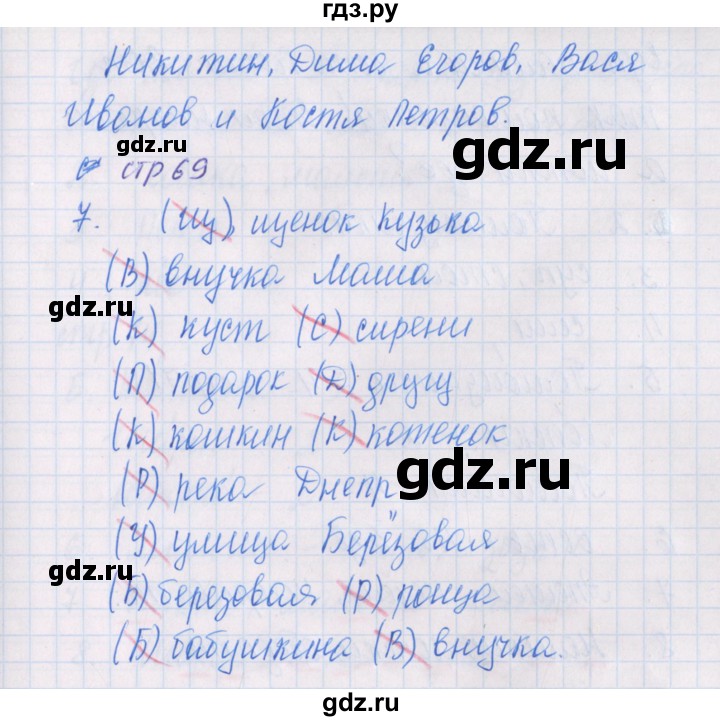 гдз.ру
Никитин, Дима Егоров, Вася
Иванов и Костя Петров.
gdz.ru
стр 69
7. (Щ) щенок Кузька
(В) внучка Маша
gdz.ru
(К) куст (С) сирени
gdz.ru
(П) подарок (Д) другу
(К) кошкин (К) котенок
gdz.ru
(Р) река Днепр
(У) улица Берёзовая
gdz.ru
(Б) березовая (Р) роща
(Б) бабушкина (В) внучка.
gdz.ru